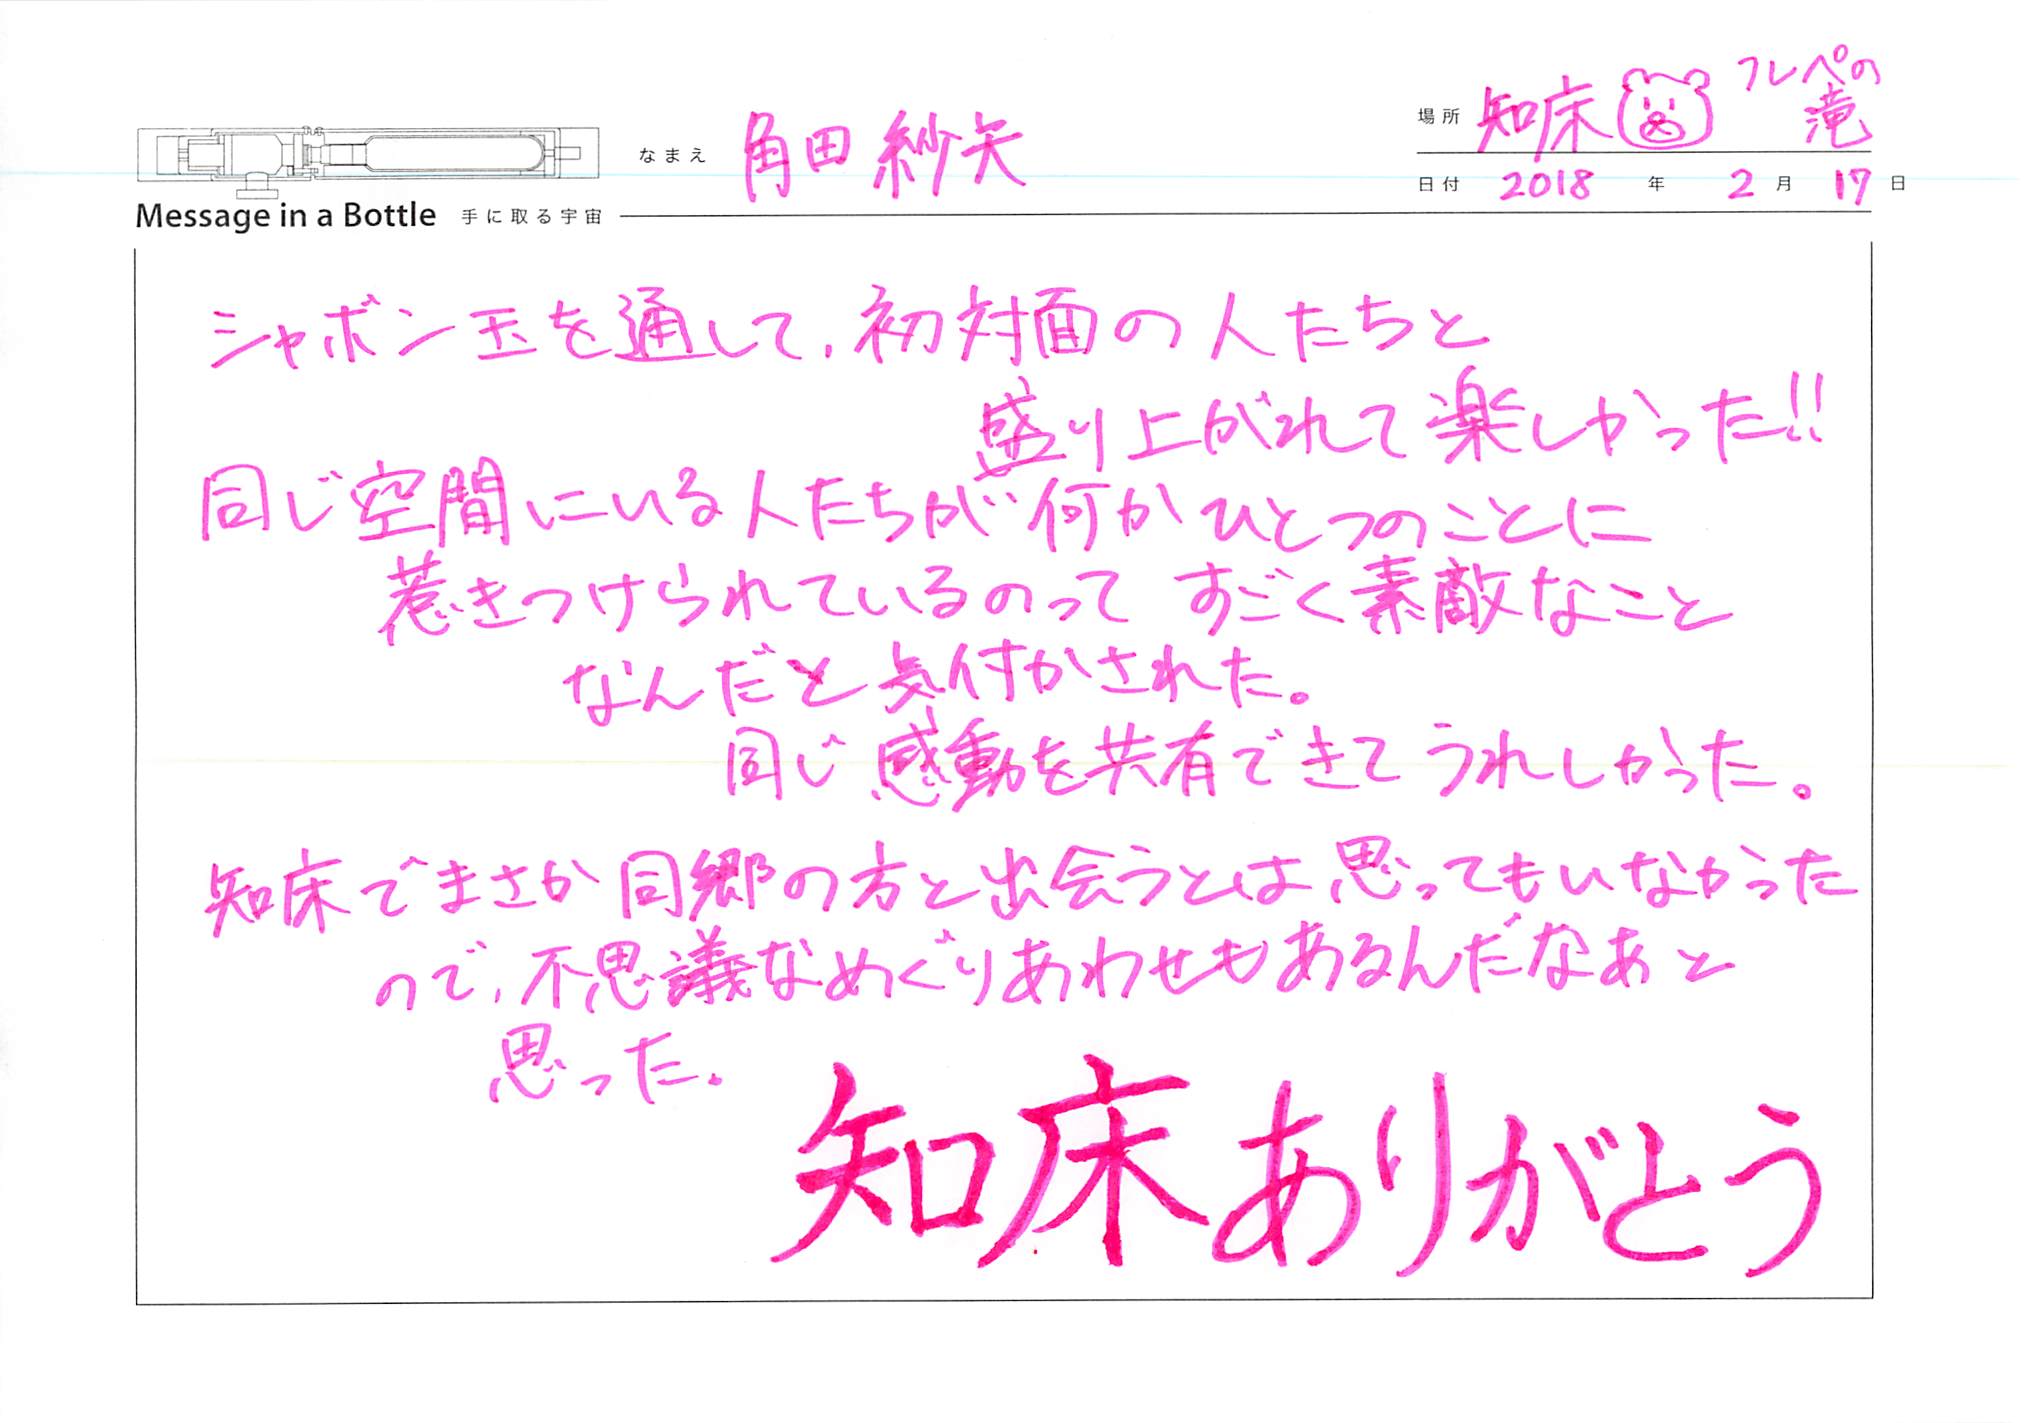 場所 知床 フレペの
滝
なまえ 角田 紗矢
日付 2018 年 2 月 17 日
Message in a Bottle 手に取る宇宙
シャボン玉を通して、初対面の人たちと
盛り上がれて楽しかった!!
同じ空間にいる人たちが何かひとつのことに
惹きつけられているのって すごく素敵なこと
なんだと気付かされた。
同じ感動を共有できてうれしかった。
知床でまさか同郷の方と出会うとは思ってもいなかった
ので、不思議なめぐりあわせもあるんだなあと
思った。
知床ありがとう